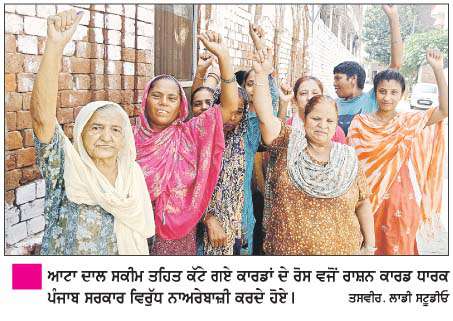 ਆਟਾ ਦਾਲ ਸਕੀਮ ਤਹਿਤ ਕੱਟੇ ਗਏ ਕਾਰਡਾਂ ਦੇ ਰੋਸ ਵਜੋਂ ਰਾਸ਼ਨ ਕਾਰਡ ਧਾਰਕ
ਪੰਜਾਬ ਸਰਕਾਰ ਵਿਰੁੱਧ ਨਾਅਰੇਬਾਜ਼ੀ ਕਰਦੇ ਹੋਏ। ਤਸਵੀਰ. ਲਾਡੀ ਸਟੂਡੀਓ